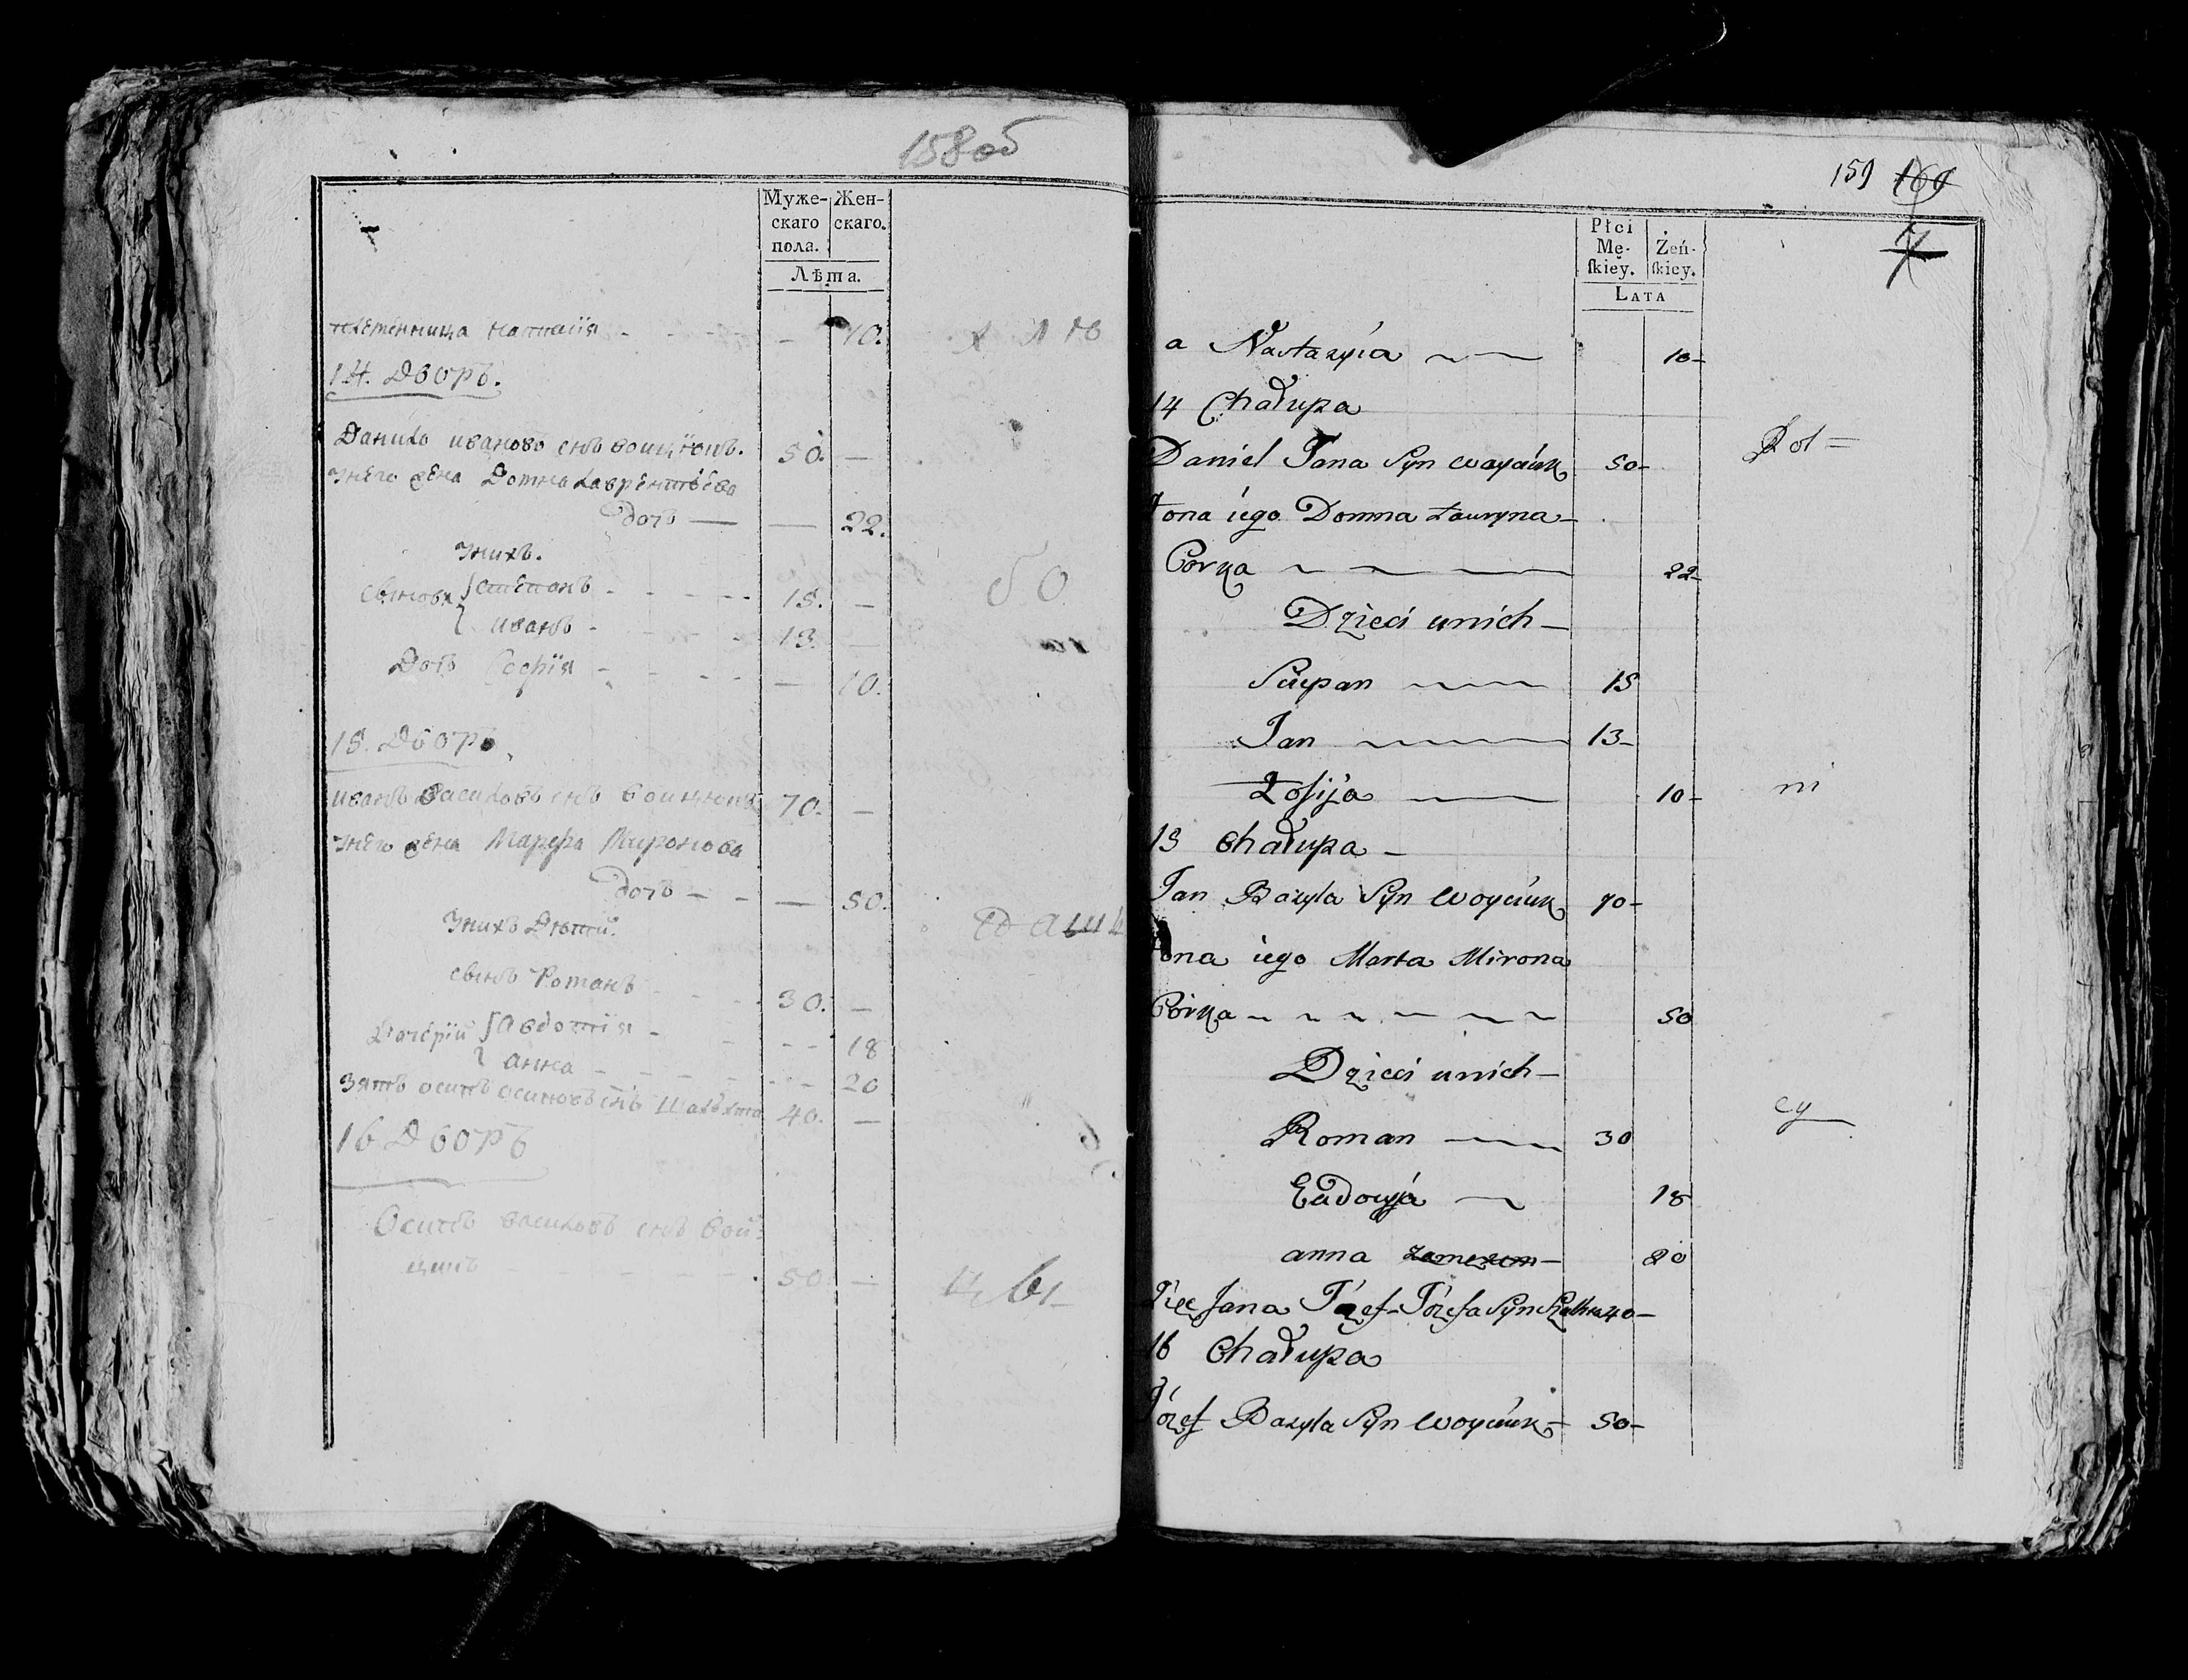 158об
Муже- Жен-
скаго скаго.
пола.
Лѣта.
племенница 10.
14. Дворъ.
Данило ивановъ снъ войцюкъ. 50. —
унего жена Домна Лаврентьева
дочь — — 22.
унихъ.
сыновя степанъ - - - - 15. —
иванъ - - - 13. —
Дочь Софія - - - — 10.
15. Дворъ.
иванъ василовъ снъ войцюкъ 70. —
унего жена Марфа Миронова
дочь — - — 50.
унихъ Дѣти.
сынъ Романъ - - - 30. —
Дочерїи Авдотія - - - - 18
анна - - - - - - 20
Зять осипъ осиповъ снъ 40. —
16 Дворъ
Осипъ василовъ снъ вой:
цюкъ - - - - - 50 —
159 169
7
Płci
Mę- Żeń-
ſkiey. ſkiey.
LATA
a Nastazyia 10-
14 Chałupa
Daniel Jana Syn Woyciuk 50-
Żona iego Domna Ławryna-
Corka 22-
Dzieci unich-
Sciepan 15
Jan 13-
Zofija 10-
ni
15 Chałupa -
Jan Bazyla Syn Woyciuk 70-
Żona iego Marta Mirona
Córka 50
Dzieci unich-
cy
Roman 30
Eudoxyja 18
anna 20
Zięć Jana Józef Józefa Syn 40-
16 Chałupa
Józef Bazyla Syn Woyciuk- 50-